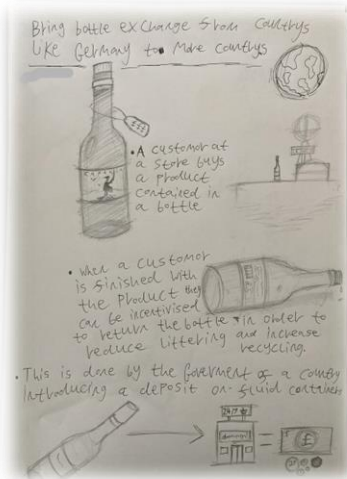 Bring bottle exchange from countrys
like Germany to more countrys
• A customor at
a store buys
a product
contained in
a bottle
• When a customor
is finished with
the product they
can be incentivised
to return the bottle in order to
reduce littering and increase
recycling.
• This is done by the Goverment of a country
introducing a deposit on fluid containers
24/7
=
£